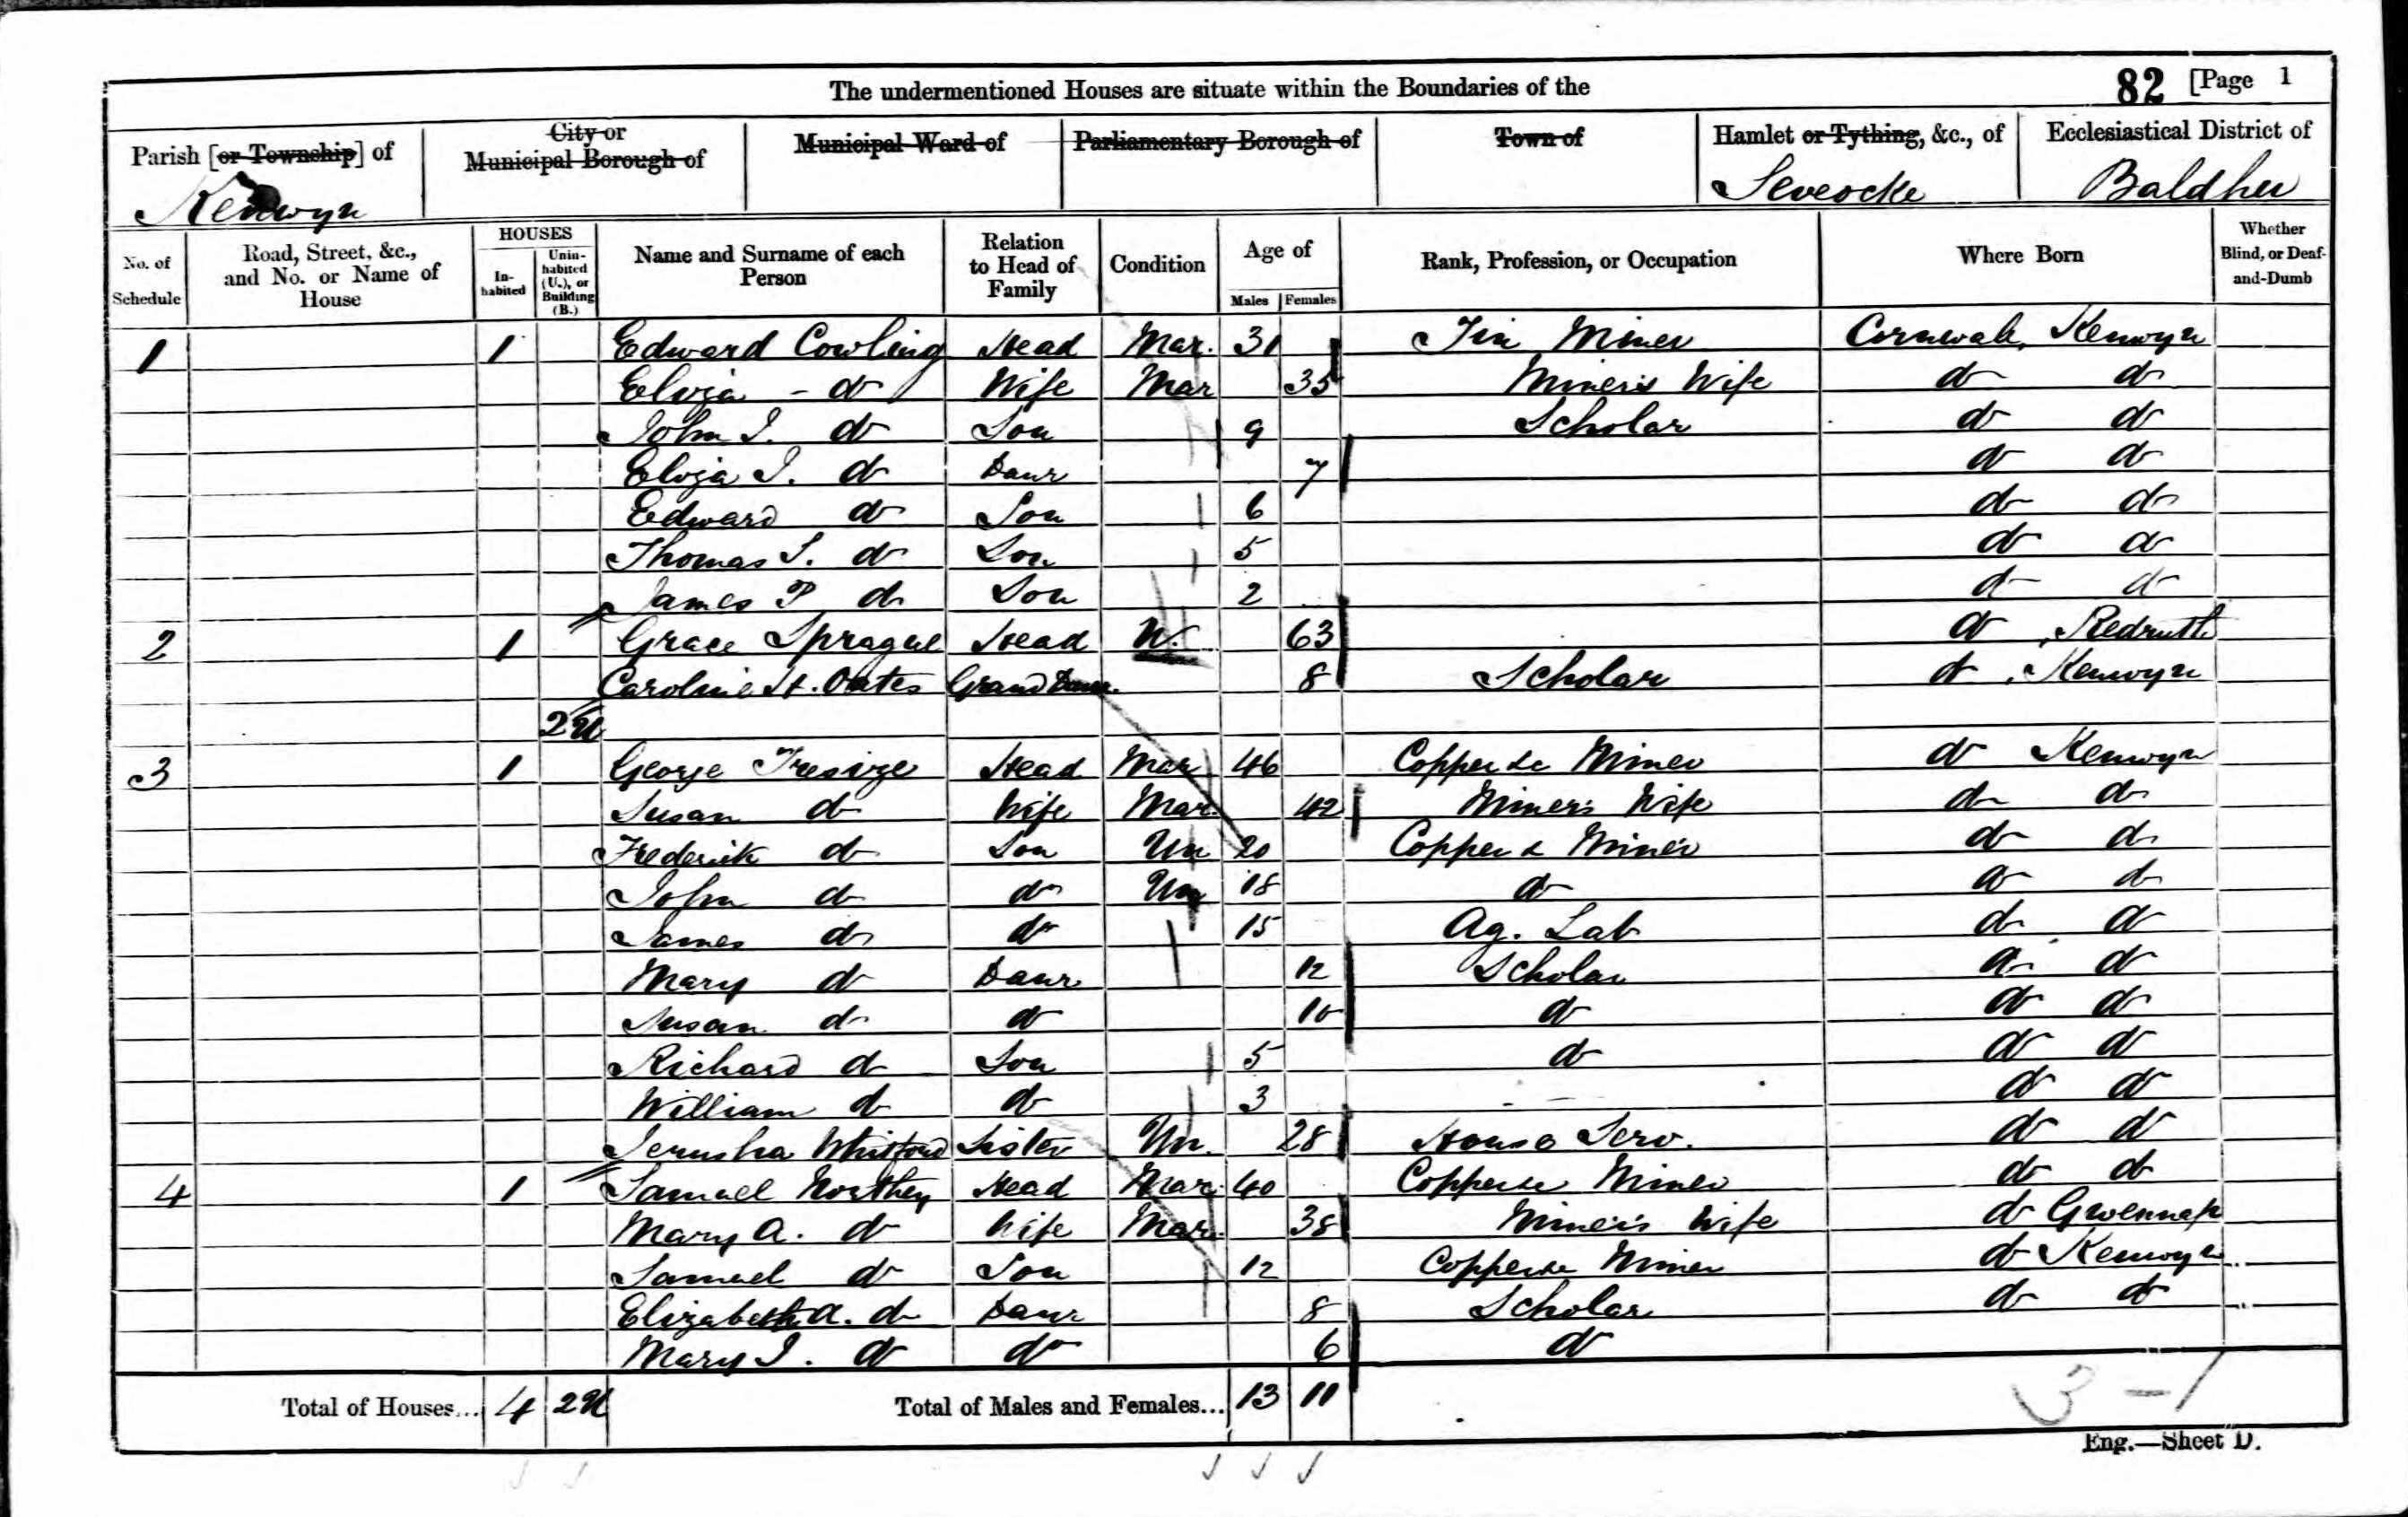 The undermentioned Houses are situate within the Boundaries of the 82 [Page 1
Parish [or Township] of City or Municipal Borough of Municipal Ward of Parliamentary Borough of Town of Hamlet or Tything, &c., of Ecclesiastical District of
Kenwyn Seveocke Baldhu
No. of Schedule Road, Street, &c., and No. or Name of House HOUSES In-habited Unin-habited (U.), or Building (B.) Name and Surname of each Person Relation to Head of Family Condition Age of Males Females Rank, Profession, or Occupation Where Born Whether Blind, or Deaf-and-Dumb
1 1 Edward Cowling Head Mar. 31 Tin Miner Cornwall, Kenwyn
Eliza - do Wife Mar 35 Miner's Wife do do
John J. do Son 9 Scholar do do
Eliza J. do Daur 7 do do
Edward do Son 6 do do
Thomas S. do Son 5 do do
James P do Son 2 do do
2 1 Grace Sprague Head W. 63 do, Redruth
Caroline H. Oates Grand Daur. 8 Scholar do, Kenwyn
2 U
3 1 George Tresize Head Mar 46 Copper Miner do Kenwyn
Susan do Wife Mar. 42 Miner's Wife do do
Frederick do Son Un 20 Copper Miner do do
John do do Un 18 do do do
James do do 15 Ag. Lab do do
Mary do Daur 12 Scholar do do
Susan do do 10 do do do
Richard do Son 5 do do do
William do do 3 do do
Jerusha Whitford Sister Un. 28 House Serv. do do
4 1 Samuel Northey Head Mar. 40 Copper Miner do do
Mary A. do Wife Mar. 38 Miner's Wife do Gwennap
Samuel do Son 12 Copper Miner do Kenwyn
Elizabeth A. do Daur 8 Scholar do do
Mary J. do do 6 do
Total of Houses... 4 2 U Total of Males and Females... 13 11
3 - 1
Eng.—Sheet D.